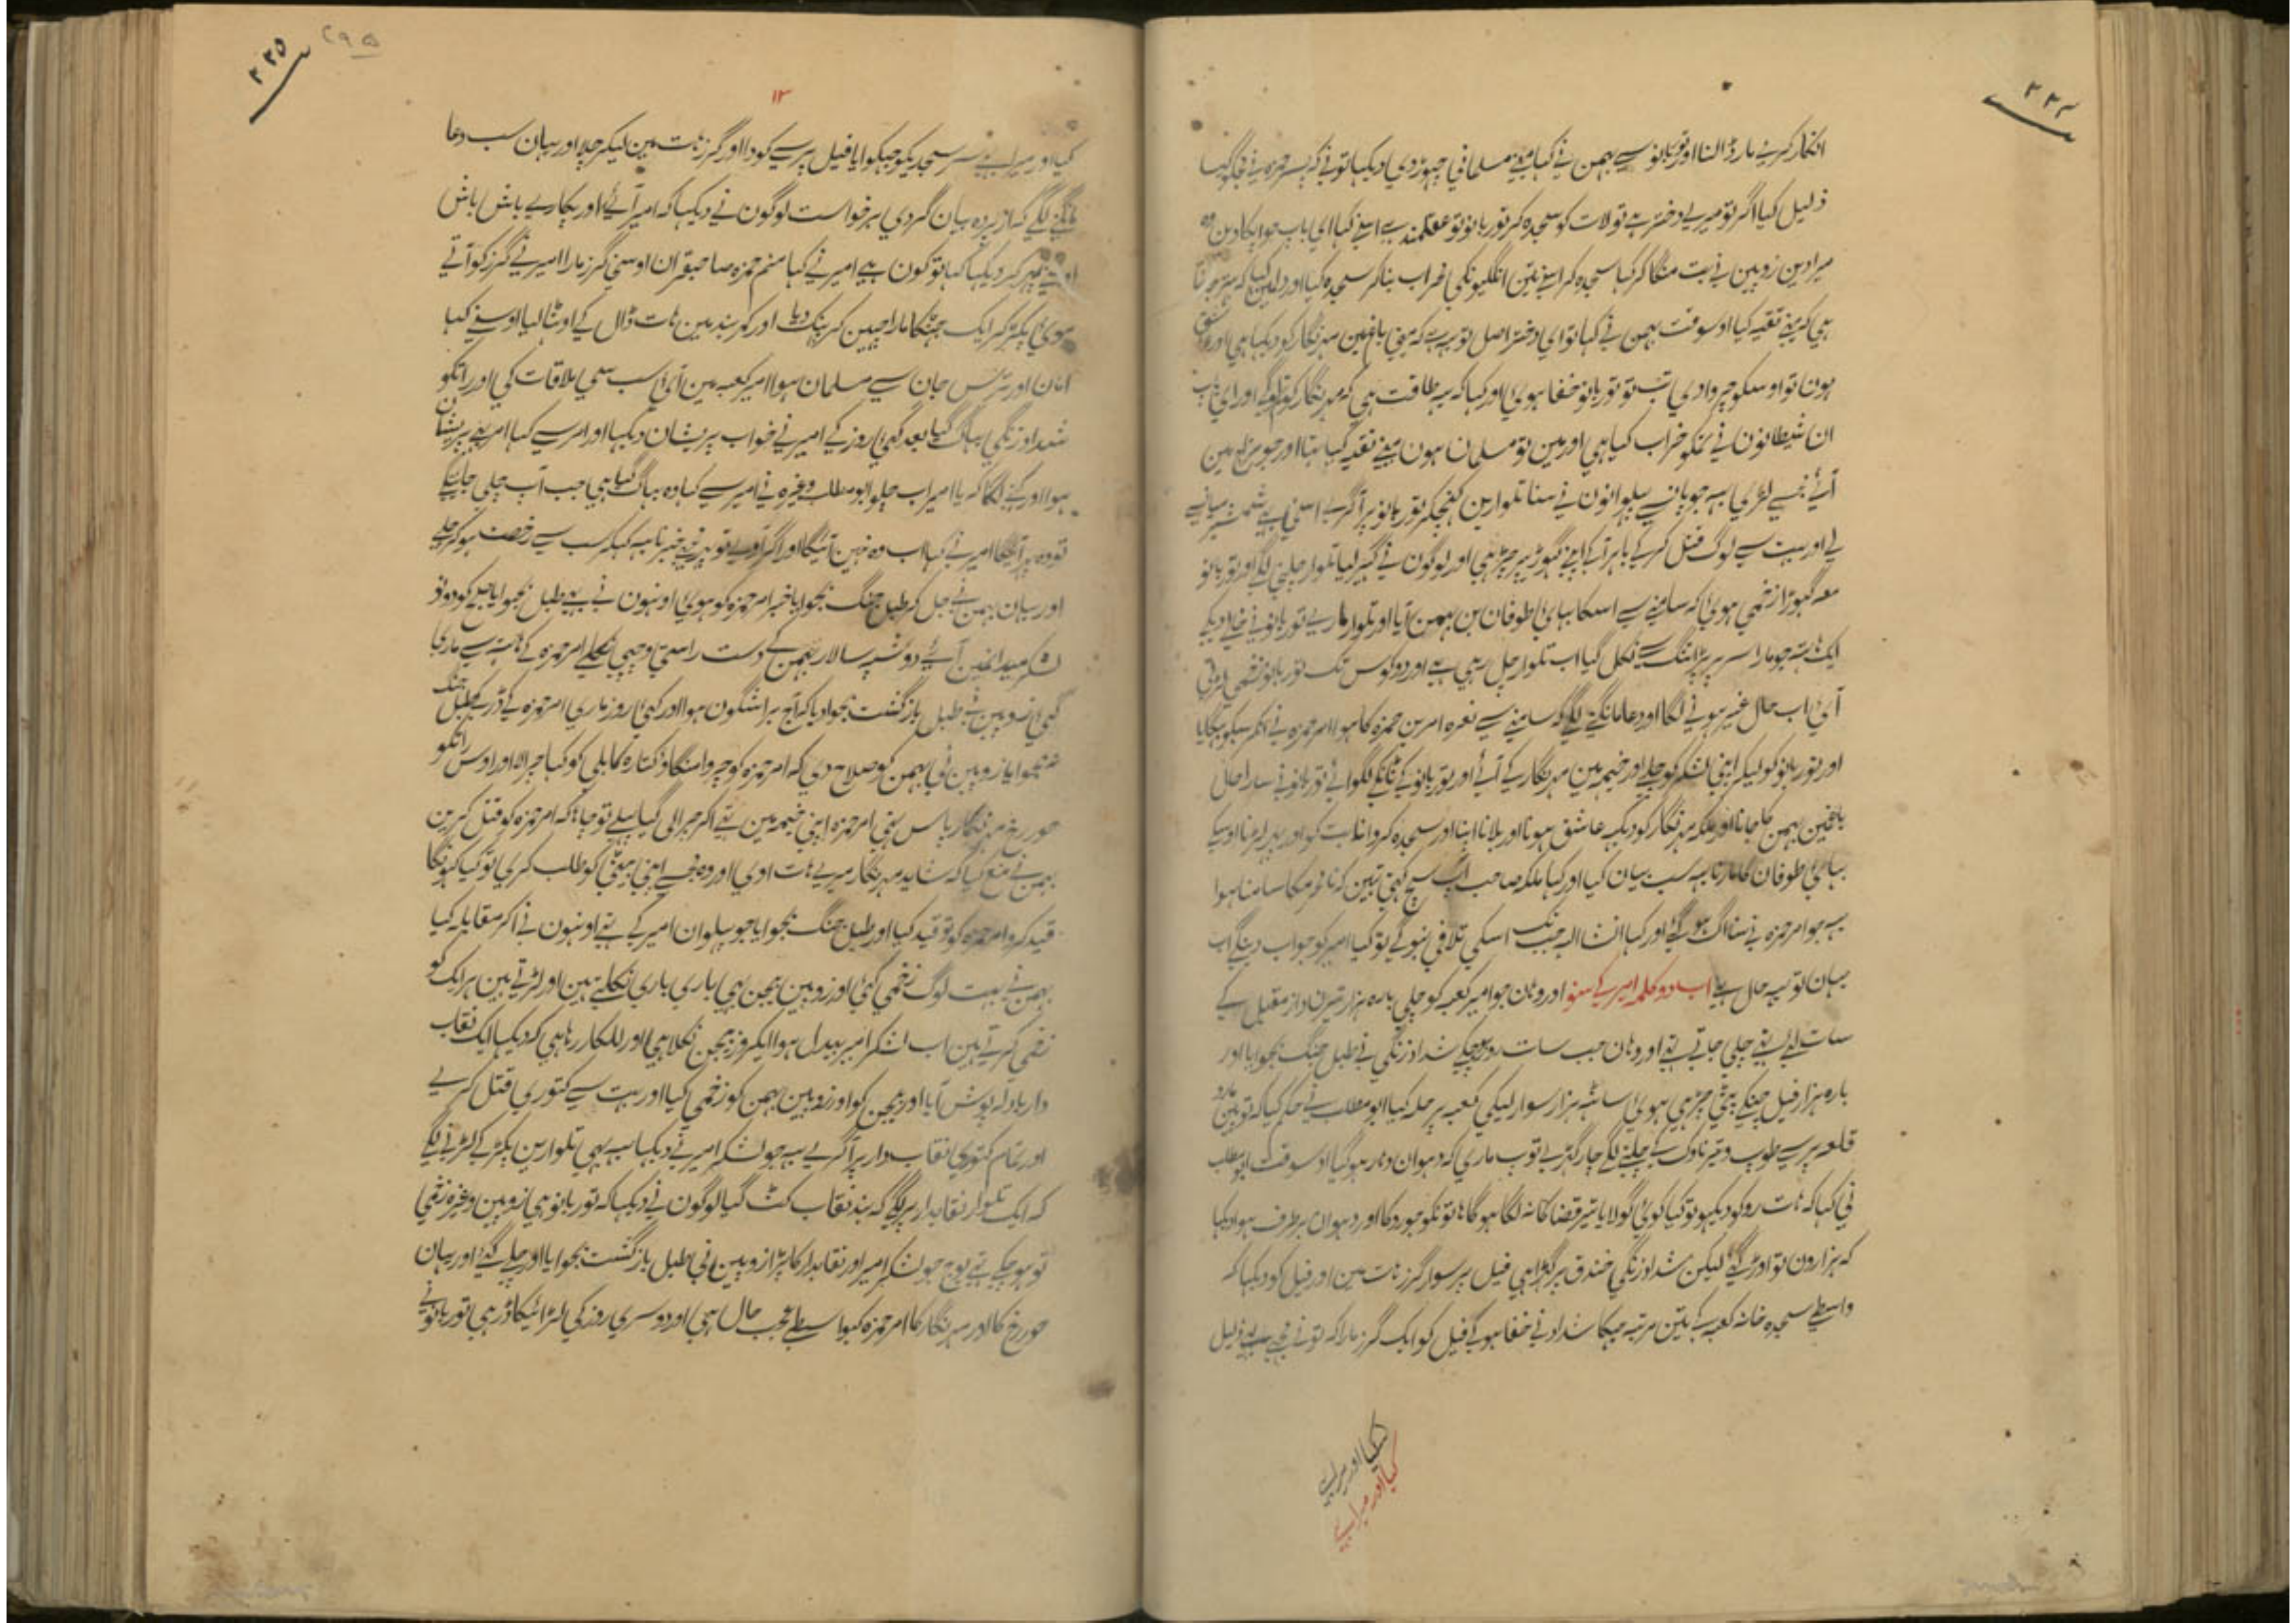 ۳۳۴
انکار کرے مار ڈالنا اور نور بانو سے بہمن نے کہا مینے مسلمانی چہوڑ دی دیکہا تونے کہ پسر حمزہ نے
ذلیل کیا اگر تو میرے دختر ہے تو لات کو سجدہ کر نور بانو تو عقلمند ہے اسنے کہا ای باپ جو آپکا دین وہ
میرا دین زوپین نے بت منگا کر کہا سجدہ کر اسنے تین انگلیونکی محراب بنا کر سجدہ کیا اور دلمین کہا کہ
ہی کہ مینے تقیہ کیا اوسوقت بہمن نے کہا تو ای دختر اصل تو یہ ہے کہ مینے باغمین مہرنگار کو دیکہا ہی اور عشق
ہونا تو اوسکو چروا دی تب تو نور بانو خفا ہوی اور کہا کہ یہ طاقت ہی کہ مہرنگار کو اور ای باپ
ان شیطانون نے تمکو خراب کیا ہی اور مین تو مسلمان ہون مینے تقیہ کیا تہا اور جو مین
آئے مجسے لڑی یہہ جو پانسے پہلوانون نے سنا تلوارین کہنچکر نور بانو پر آ گرے اسنی بہے شمشیر میانسے
لے اور بہت سے لوگ قتل کرکے باہر آکے اپنے گہوڑے پر چڑہی اور لوگون نے گہیر لیا تلوار چلنی لگے اور نور بانو
معہ گہوڑا زخمی ہوی کہ سامنے سے اسکا بہائی طوفان بن بہمن آیا اور تلوار مارے نور بانو نے خالی دیکے
ایک ہتہ جو مارا سر پر پڑا تنگ سے نکل گیا اب تلوار چل رہی ہے اور دو کوس تک نور بانو زخمی لڑتی
آی اب حال غیر ہونے لگا اور دعا مانگنے لگے کہ سامنے سے نعرہ امر بن حمزہ کا ہوا امر حمزہ نے انکر سبکو بہگایا
اور نور بانو کو لیکر اپنی لشکر کو چلے اور خیمہ مین مہرنگار کے آئے اور نور بانو کے ٹانکے لگوائے نور بانو نے سارا حال
باغمین بہمن کا جانا اور ملکہ مہرنگار کو دیکہہ عاشق ہونا اور بلانا اپنا اور سجدہ کروانا بت کو اور پہر لڑنا اوسکے
بہائی طوفان کا مارنا یہہ سب بیان کیا اور کہا ملکہ صاحب آپ سچ کہتی تہین کہ نامحرمکا سامنا ہوا
یہہ جو امر حمزہ نے سنا آگ ہوگئے اور کہا انشاالہ جبتک اسکی تلافی نہوگے تو کیا امیر کو جواب دینگے اب
یہان تو یہہ حال ہے اب دو کلمہ امیر کے سنو اور وہان جو امیر کعبہ کو چلی بارہ ہزار تیرانداز مقبل کے
سات لئے ہتے چلی جاتے ہتے اور وہان جب سات روز ہوچکے شداد زنگی نے طبل جنگ بجوایا اور
بارہ ہزار فیل جنکے پٹی چڑہی ہوئی ساٹہہ ہزار سوار لیکی کعبہ پر حملہ کیا ابومطلب نے حکم کیا کہ توپین مارو
قلعہ پر سے طوپ و تیر ناوک کے چلنے لگے چار گہڑے توپ ماری کہ دہوان دہار ہوگیا اوسوقت ابومطلب
نی کہا کہ ہات روکو دیکہو تو کیا کوئی گولا یا تیر قضا کا نہ لگا ہوگا ہاتونکو جو روکا اور دہوان برطرف ہوا دیکہا
کہ ہزارون تو اوڑ گئے لیکن شداد زنگی خندق پر کہڑا ہی فیل پر سوار گرز ہات مین اور فیل کو دیکہا کہ
واسطے سجدہ خانہ کعبہ کے تین مرتبہ جہکا شداد نے خفا ہوکے فیل کو ایک گرز مارا کہ تونے مجہے بہے ذلیل
کیا اور میرا بہے
کیا اور میرا بہے
۳۳۵
۲۹۵
۱۳
کیا اور میرا بہے سر سجدیکو جہکوایا فیل پر سے کودا اور گرز ہات مین لیکر چلا اور یہان سب دعا
مانگنے لگے کہ از پردہ بیان گردی برخواست لوگون نے دیکہا کہ امیر آئے اور پکارے باش باش
اوسنے پہر کر دیکہا کہا تو کون ہے امیر نے کہا منم حمزہ صاحبقران اوسنی گرز مارا امیر نے گرز کو آتے
ہوئے پکڑ کر ایک جہٹکا مارا چہین کر پہنک دیا اور کمربند مین ہات ڈال کے اوٹہا لیا اوسنے کہا
امان اور ترس جان سے مسلمان ہوا امیر کعبہ مین آئی سب سی ملاقات کی اور راتکو
شداد زنگی بہاگ گیا بعد کئی روز کے امیر نے خواب پریشان دیکہا اور امر سے کہا امر بہے پریشان
ہوا اور کہنے لگا کہ یا امیر اب چلو ابومطلب وغیرہ نے امیر سے کہا وہ بہاگ گیا ہی جب آپ چلی جاینگے
تو وہ پہر آئیگا امیر نے کہا اب وہ نہین آئیگا اور اگر آوے تو پہر مجہے خبر نا یہہ کہکر سب سے رخصت ہوکر چلے
اور یہان بہمن نے جل کر طبل جنگ بجوایا خبر امر حمزہ کو ہوئی اونہون نے بہے طبل بجوایا صبح کو دونو
لشکر میدانمین آئے دو سپہ سالار بہمن کے دست راستی و چپی نکلے امر حمزہ کے ہاتہہ سے ماری
گئی زوپین نے طبل بازگشت بجوا دیا کہ آج برا شگون ہوا اور کئی روز ماری امر حمزہ کے ڈر کے طبل جنگ
نہ بجوایا زوپین نے بہمن کو صلاح دی کہ امر حمزہ کو چروا منگاؤ کتارہ کابلی کو کہا چرا لا اور اوس راتکو
حوررخ مہرنگار پاس تہی امر حمزہ اپنی خیمہ مین تہے آکر چرا لی گیا پہلے تو چاہا کہ امر حمزہ کو قتل کرین
بہمن نے منع کیا کہ شاید مہرنگار میرے ہات اوی اور وہ مجسے اپنی بیٹی کو طلب کری تو کیا کہونگا
قید کرو امر حمزہ کو تو قید کیا اور طبل جنگ بجوایا جو پہلوان امیر کے تہے اونہون نے آکر مقابلہ کیا
بہمن نے بہت لوگ زخمی کئی اور زوپین بیجن بہی باری باری نکلتے ہین اور لڑتے ہین ہر ایک کو
زخمی کرتے ہین اب لشکر امیر بیدل ہوا ایکروز بیجن نکلا ہی اور للکار رہا ہی کہ دیکہا ایک نقاب
دار بادلہ پوش آیا اور بیجن کو اور زوپین بہمن کو زخمی کیا اور بہت سے کتوری قتل کرے
اور تمام کتوری نقابدار پر آ گرے یہہ جو لشکر امیر نے دیکہا یہہ بہی تلوارین پکڑ کے لڑنے لگے
کہ ایک تلوار نقابدار پر لگے کہ بند نقاب کٹ گیا لوگون نے دیکہا کہ نور بانو ہی زوپین وغیرہ زخمی
تو ہوچکے تہے بوج جو لشکر امیر اور نقابدار کا پڑا زوپین نے طبل بازگشت بجوایا اور چلے گئے اور یہان
حوررخ کا اور مہرنگار کا امر حمزہ کیواسطے عجب حال ہی اور دوسری روز کی لڑائیکا ڈر ہی نور بانو نے